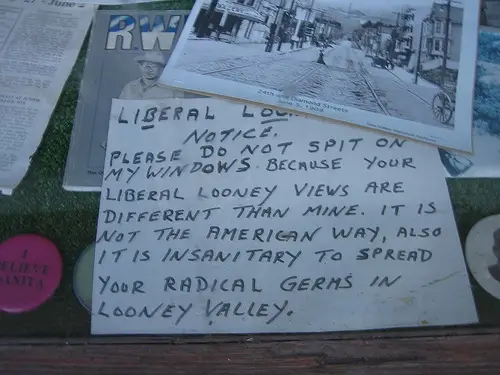 27 - June 2
RW
24th and Diamond Streets
June 5, 1909
LIBERAL
NOTICE.
PLEASE DO NOT SPIT ON
MY WINDOWS BECAUSE YOUR
LIBERAL LOONEY VIEWS ARE
DIFFERENT THAN MINE. IT IS
NOT THE AMERICAN WAY, ALSO
IT IS INSANITARY TO SPREAD
YOUR RADICAL GERMS IN
LOONEY VALLEY.
I
BELIEVE
ANITA